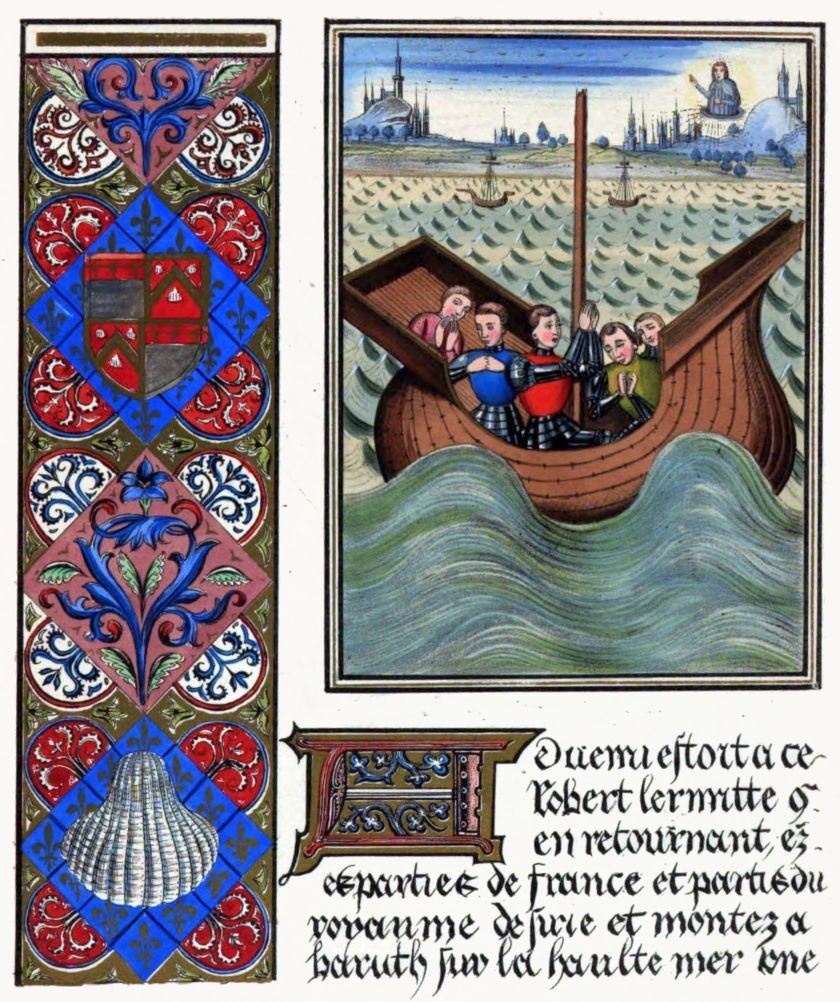 Aduenu estoit a ce
Robert lermitte q
en retournant ez
es parties de france et partis du
royaume de sirie et montez a
baruth sur la haulte mer vne